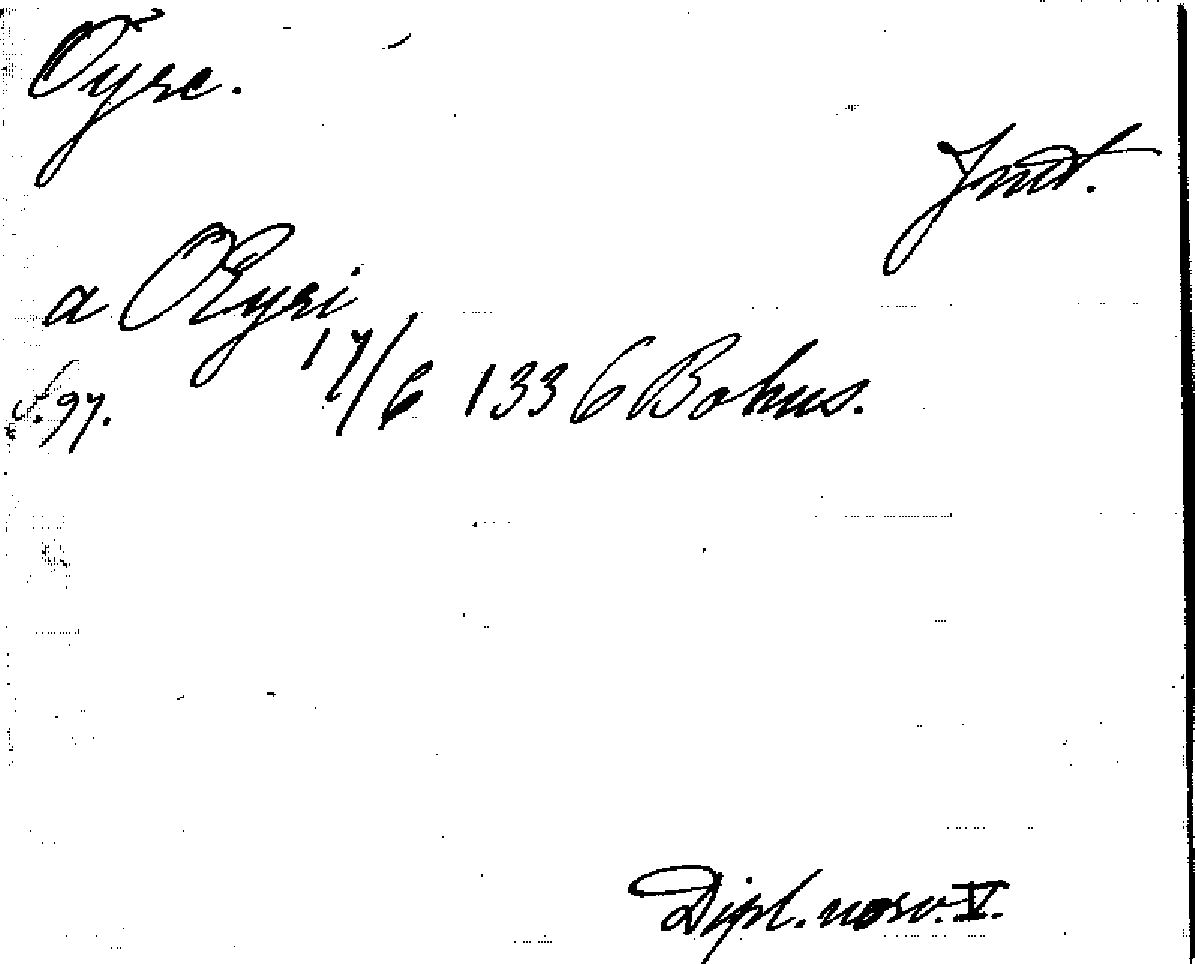 Öyre.
Jmt.
a Œyri
17/6 1336 Bohus.
s. 97.
Dipl. norv. V.